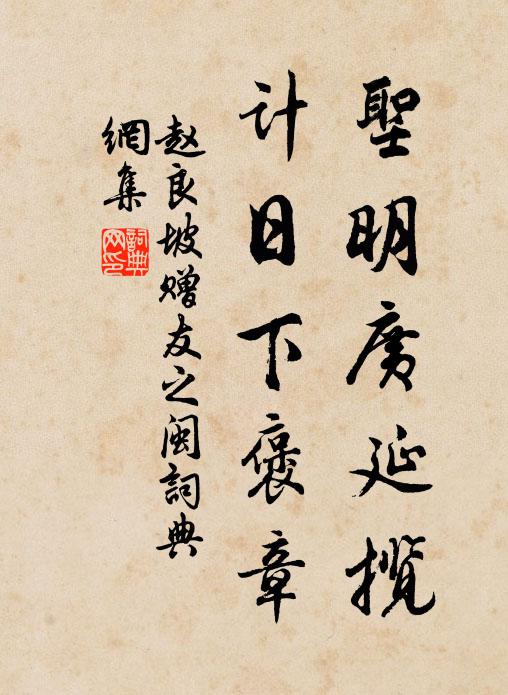 聖明廣延攬
计日下褒章
赵良坡赠友之闽詞典
網集
詞典
网印